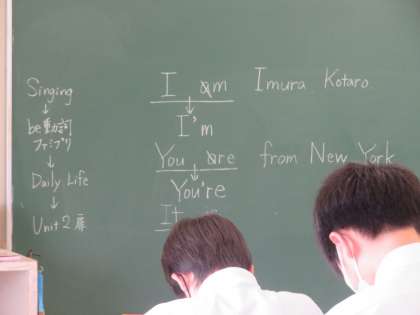 Singing
↓
be動詞
ファミリ
↓
Daily Life
↓
Unit 2 扉
I am Imura Kotaro
↓
I'm
You are from New York
↓
You're
It